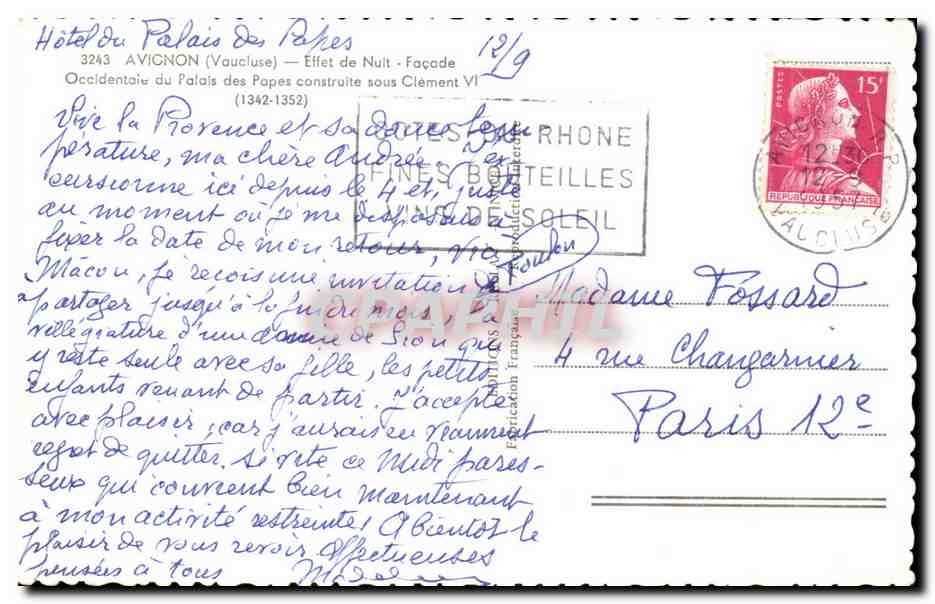 Hôtel du Palais des Papes
12/9
3243 AVIGNON (Vaucluse) — Effet de Nuit - Façade
Occidentale du Palais des Papes construite sous Clément VI
(1342-1352)
Vive la Provence et sa douce tem-
pérature, ma chère Andrée. J'ex-
cursionne ici depuis le 4 et, juste
au moment où je me disposais à
fixer la date de mon retour, via
Mâcon, je reçois une invitation à
partager jusqu'à la fin du mois, la
villégiature d'une amie de Lion qui
y reste seule avec sa fille, les petits
enfants venant de partir. J'accepte
avec plaisir, car j'aurais eu vraiment
regret de quitter si vite ce Midi pares-
seux qui convient bien maintenant
à mon activité restreinte! A bientôt le
plaisir de vous revoir. Affectueuses
pensées à tous
Toulon
COTES DU RHONE
FINES BOUTEILLES
VINS DE SOLEIL
EDITIONS
Fabrication Française Reproduction interdite
POSTES
15F
REPUBLIQUE FRANÇAISE
AVIGNON R.P.
12H30
12-9
VAUCLUSE
CPAPHIL
Madame Fossard
4 rue Changarnier
Paris 12e